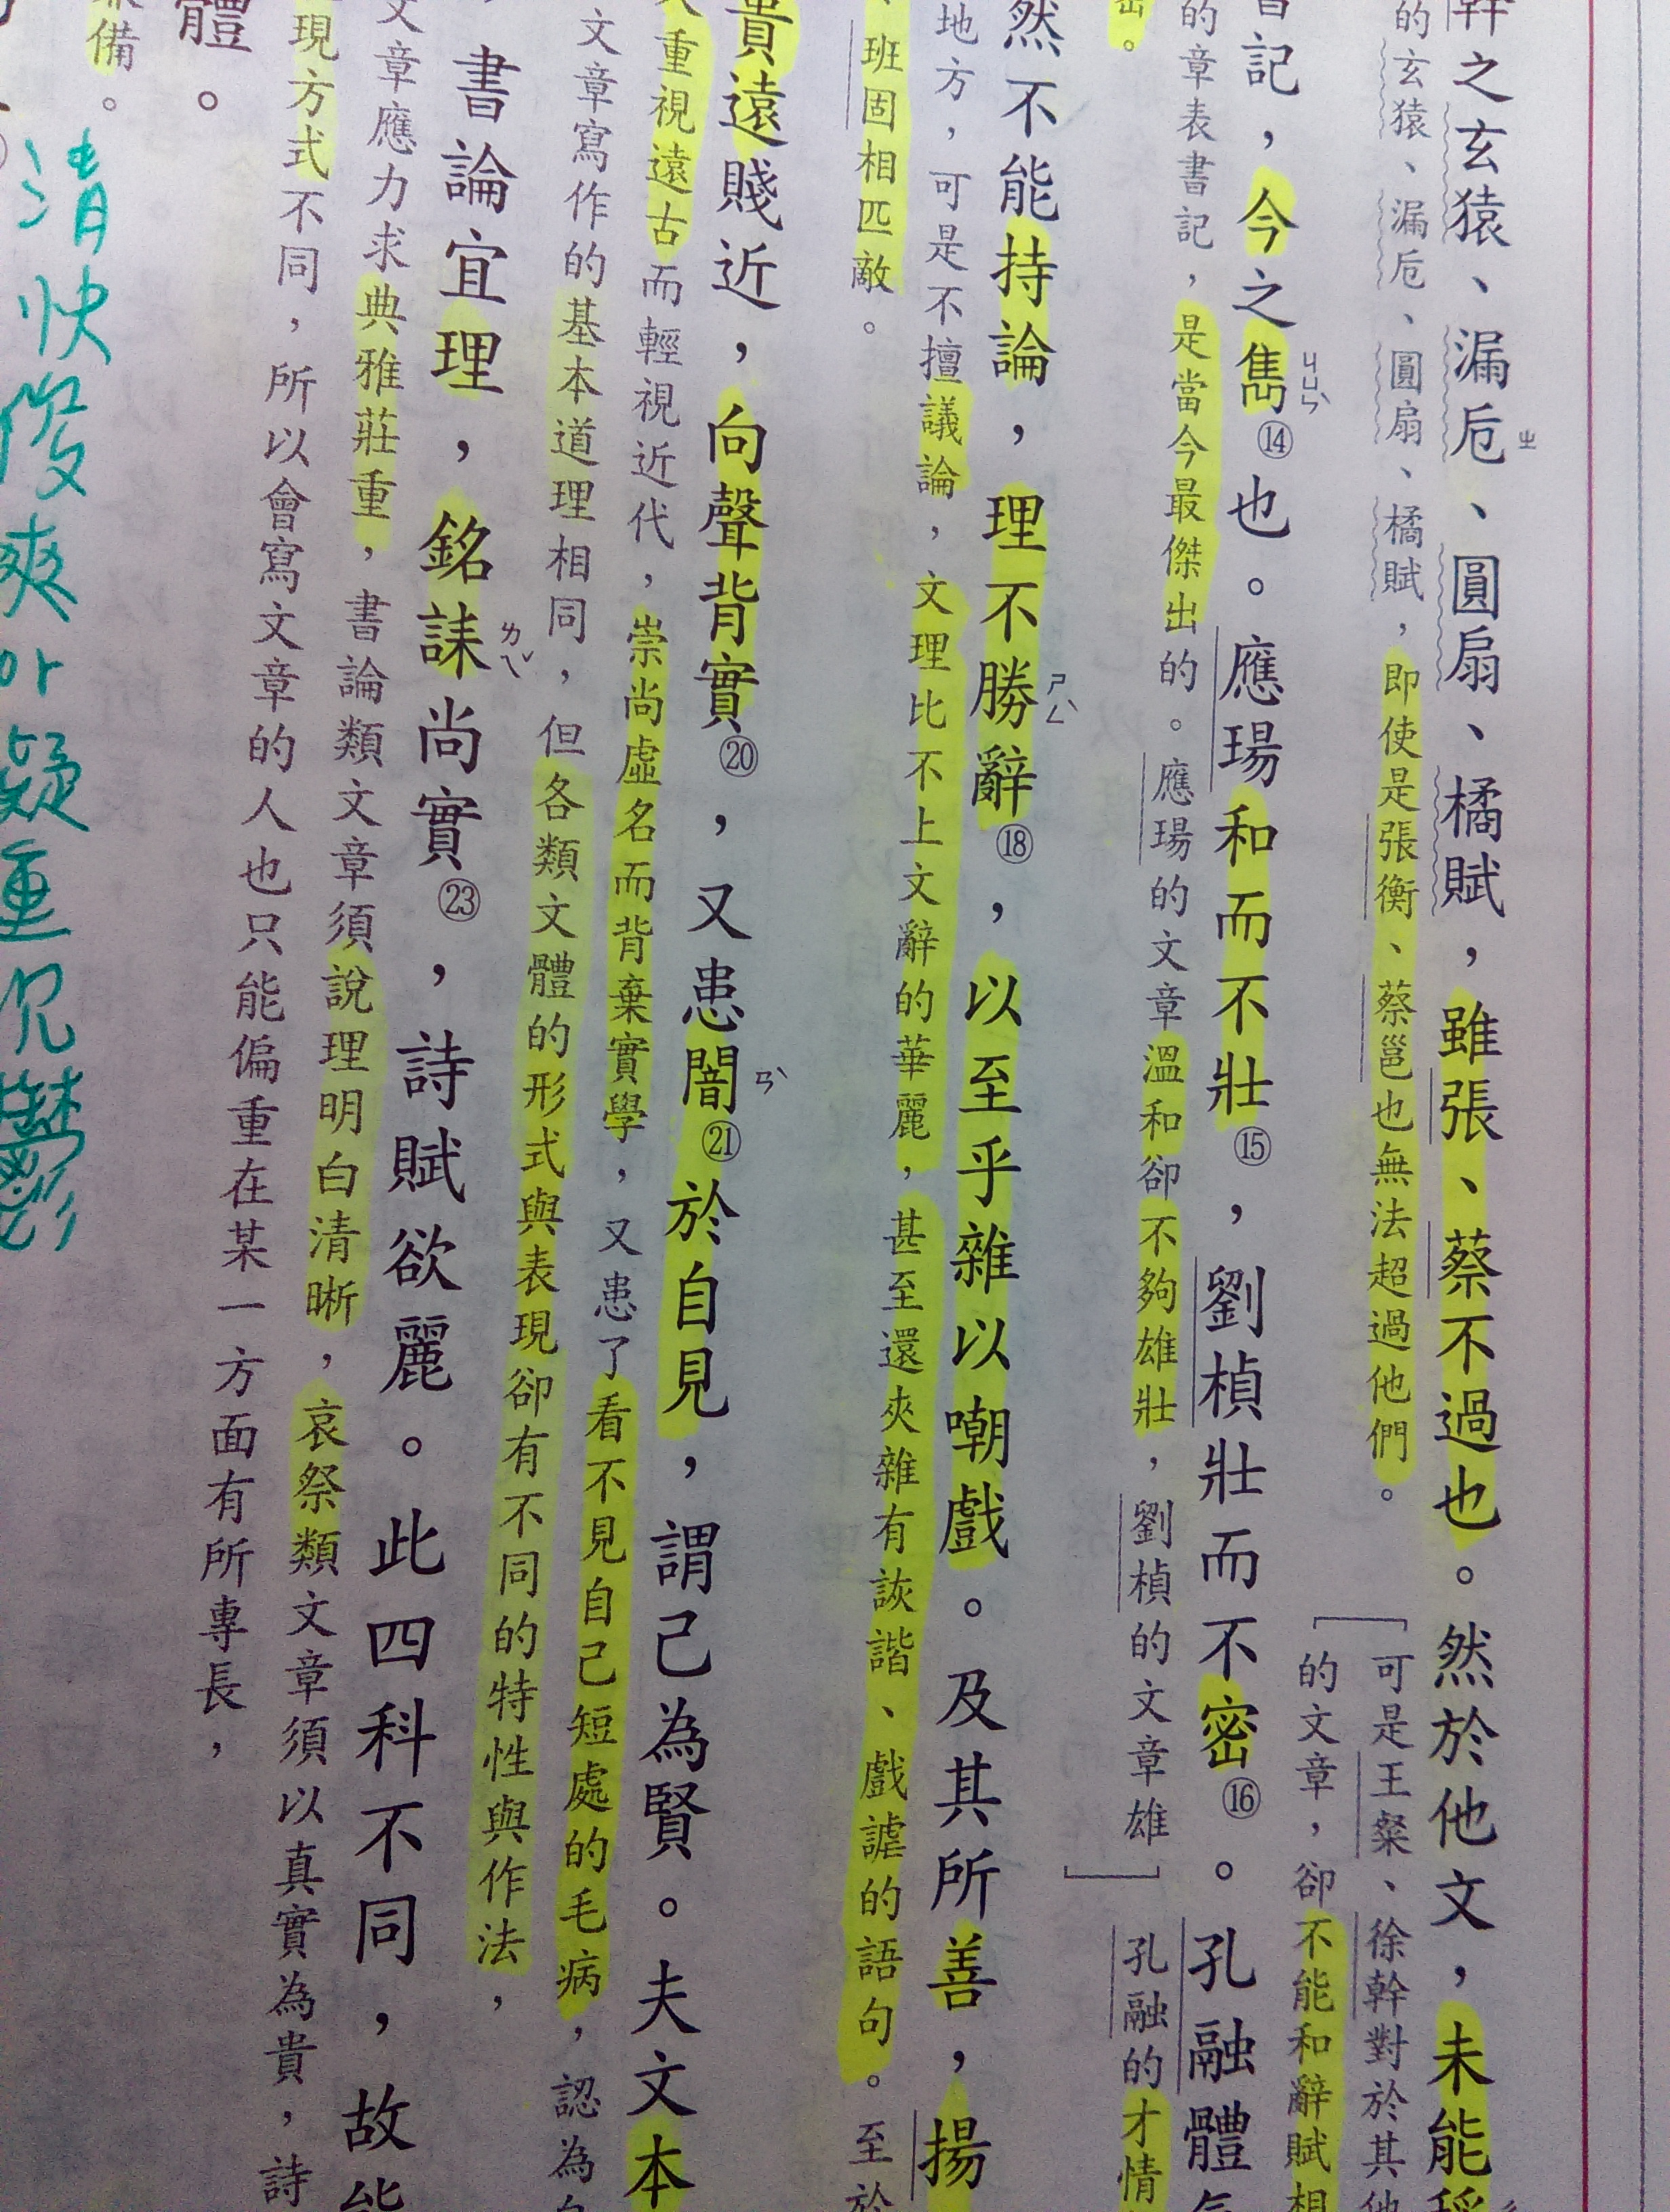 幹之玄猿、漏卮、圓扇、橘賦，雖張、蔡不過也。然於他文，未能
ㄓ
的玄猿、漏卮、圓扇、橘賦，即使是張衡、蔡邕也無法超過他們。
可是王粲、徐幹對於其他
的文章，卻不能和辭賦相
書記，今之雋⑭也。應瑒和而不壯⑮，劉楨壯而不密⑯。孔融體氣
ㄐㄩㄣˋ
的章表書記，是當今最傑出的。應瑒的文章溫和卻不夠雄壯，劉楨的文章雄
孔融的才情
出。
然不能持論，理不勝辭⑱，以至乎雜以嘲戲。及其所善，揚
ㄕㄥˋ
地方，可是不擅議論，文理比不上文辭的華麗，甚至還夾雜有詼諧、戲謔的語句。至於
、班固相匹敵。
貴遠賤近，向聲背實⑳，又患闇㉑於自見，謂己為賢。夫文本
ㄢˋ
重視遠古而輕視近代，崇尚虛名而背棄實學，又患了看不見自己短處的毛病，認為自
文章寫作的基本道理相同，但各類文體的形式與表現卻有不同的特性與作法，
，書論宜理，銘誄尚實㉓，詩賦欲麗。此四科不同，故能
ㄌㄟˇ
文章應力求典雅莊重，書論類文章須說理明白清晰，哀祭類文章須以真實為貴，詩
現方式不同，所以會寫文章的人也只能偏重在某一方面有所專長，
體。
備。
清快俊爽or凝重沉鬱